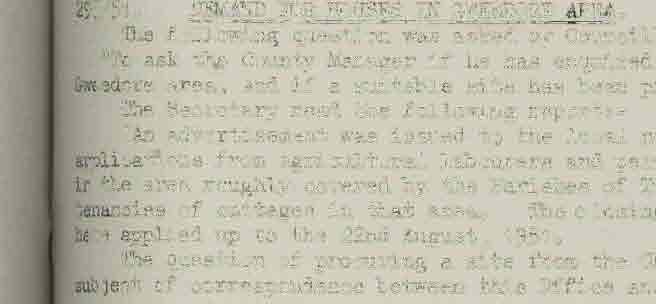 DEMAND FOR HOUSES IN GWEEDORE AREA.
The following question was asked by
"To ask the County Manager if he has enquired
Gweedore area, and if a suitable site has been
The Secretary read the following report:-
"An advertisement was issued to the local
applications from agricultural labourers and
in the area roughly covered by the Parishes of
tenancies of cottages in that area. The closing
have applied up to the 22nd August,
The question of procuring a site from the
subject of correspondence between this Office and